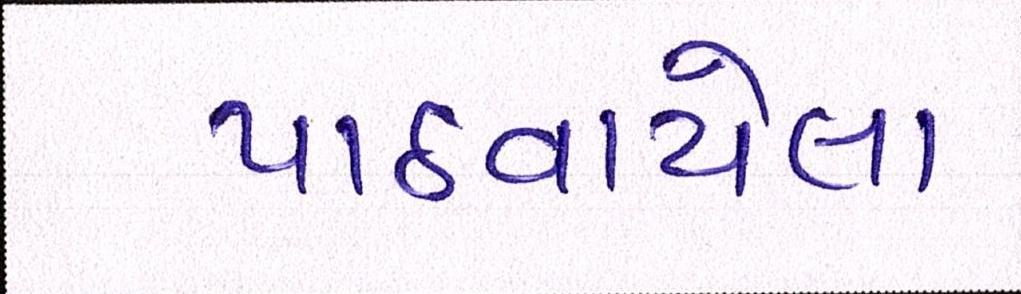 પાઠવાયેલા